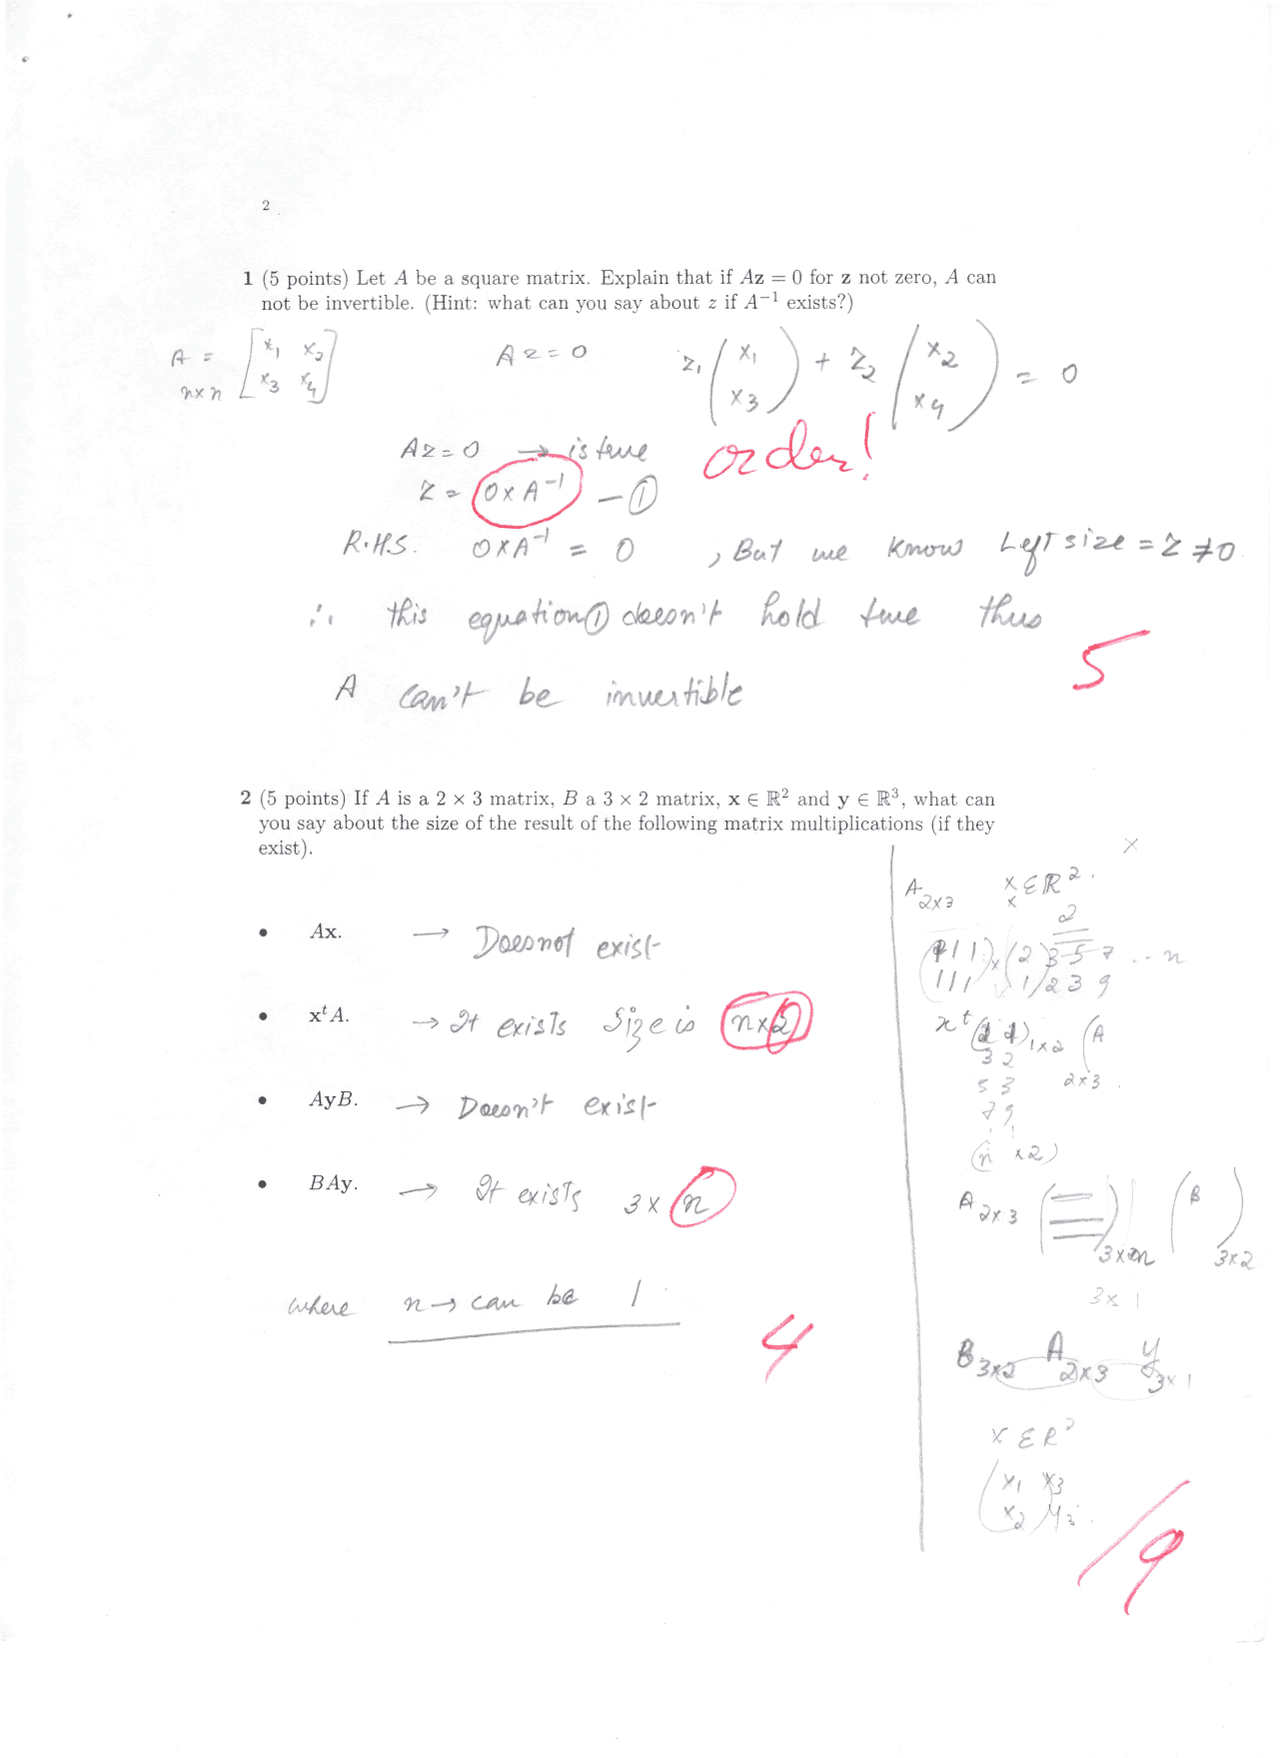 2
1 (5 points) Let A be a square matrix. Explain that if Az = 0 for z not zero, A can
not be invertible. (Hint: what can you say about z if A⁻¹ exists?)
A = [x₁ x₂
n×n x₃ x₄]
Az = 0
z₁ (x₁ x₃) + z₂ (x₂ x₄) = 0
Az = 0 → is true
order!
z = 0 × A⁻¹ — ①
R.H.S. 0×A⁻¹ = 0 , But we know Left size = z ≠ 0
∴ this equation ① doesn't hold true thus
5
A can't be invertible
2 (5 points) If A is a 2 × 3 matrix, B a 3 × 2 matrix, x ∈ ℝ² and y ∈ ℝ³, what can
you say about the size of the result of the following matrix multiplications (if they
exist).
• Ax. → Does not exist
• xᵗA. → It exists Size is n×2
• AyB. → Doesn't exist
• BAy. → It exists 3 × n
where n → can be 1
4
x
A 2×3 x ∈ ℝ².
x
2
1 1 1 × (2 3 5 7 ... n
1 1 1 1 2 3 9
xᵗ 1×2 (A
3 2
5 3 2×3
7 9
(n × 2)
A 2×3 3×n (B) 3×2
3 × 1
B 3×2 A 2×3 y 3×1
x ∈ ℝ²
(x₁ x₃
x₂
/9